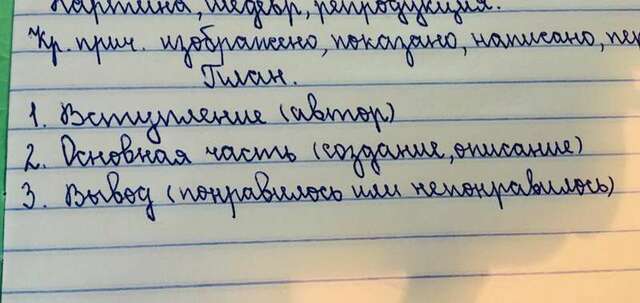 Картина, шедевр, репродукция.
Кр. прич. изображено, показано, написано,
План.
1. Вступление (автор)
2. Основная часть (создание, описание)
3. Вывод (понравилось или непонравилось)